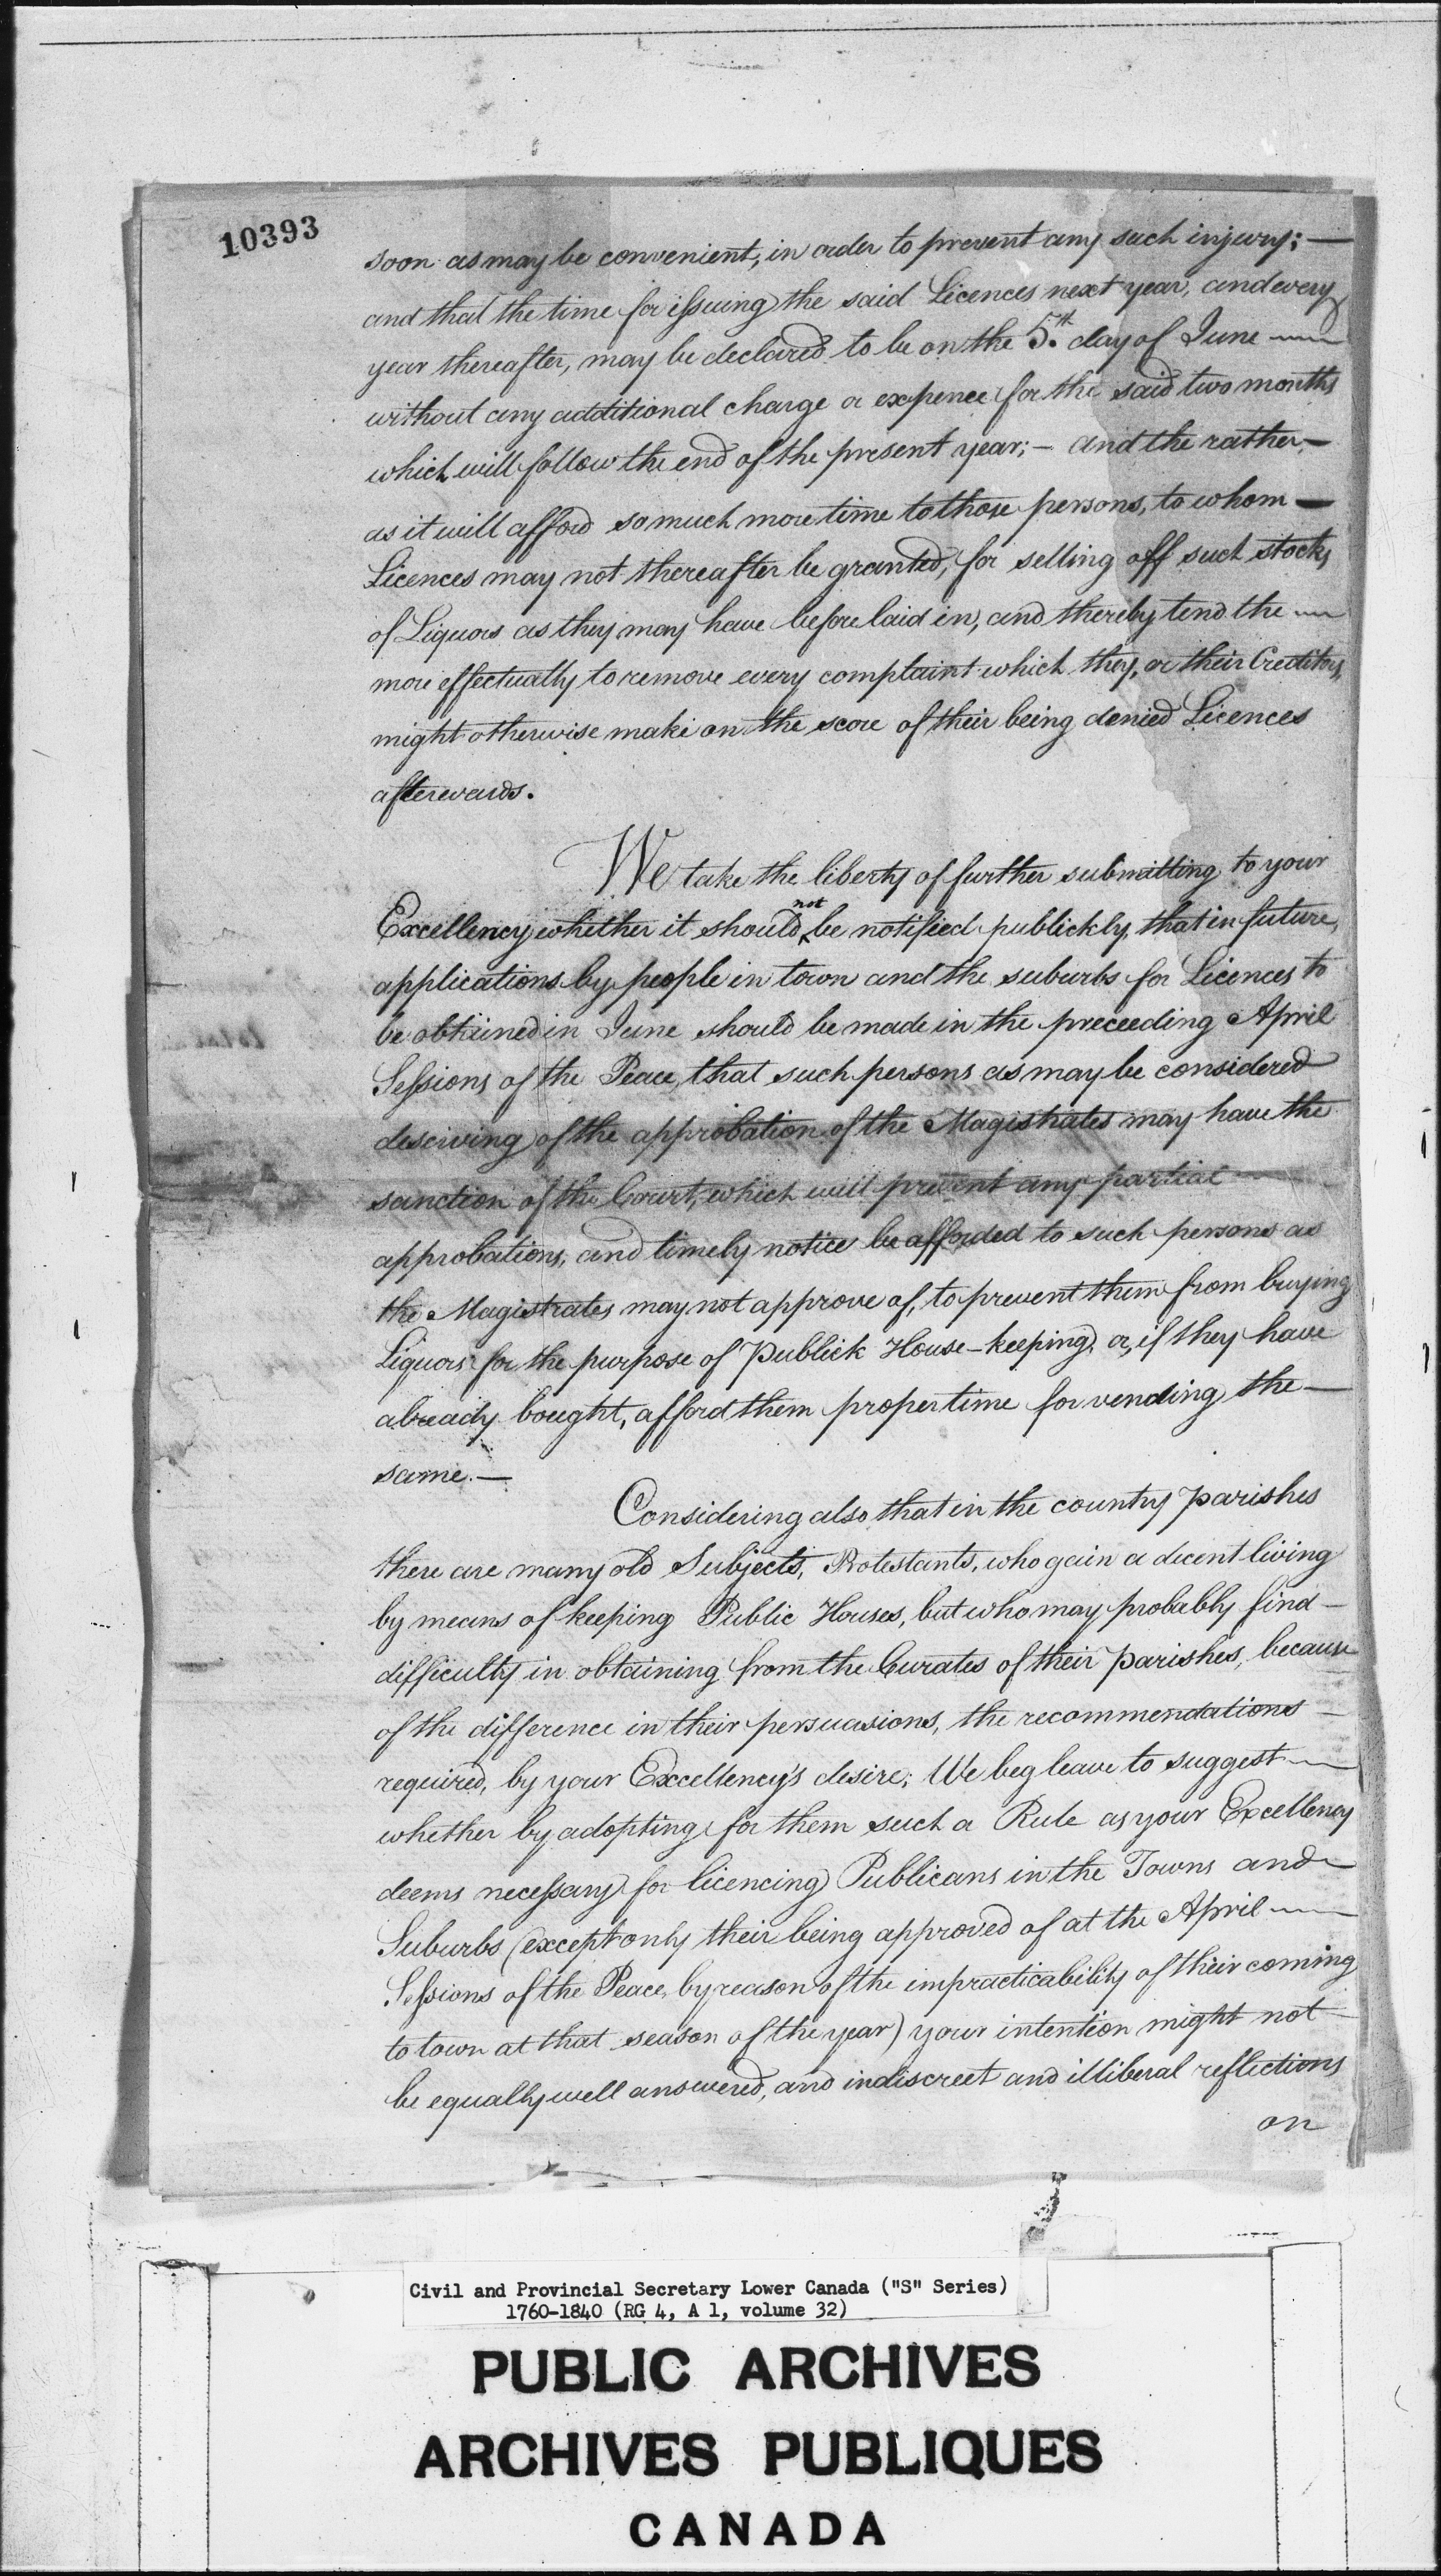 10393
soon as may be convenient, in order to prevent any such injury; —
and that the time for issuing the said Licences next year, and every
year thereafter, may be declared to be on the 5.th day of June —
without any additional charge or expence for the said two months
which will follow the end of the present year; — and the rather —
as it will afford so much more time to those persons, to whom —
Licences may not thereafter be granted, for selling off such stocks
of Liquors as they may have before laid in, and thereby tend the —
more effectually to remove every complaint which they, or their Creditors,
might otherwise make on the score of their being denied Licences
afterwards.
We take the liberty of further submitting to your
Excellency whether it should not be notified publickly, that in future,
applications by people in town and the suburbs for Licences to
be obtained in June should be made in the preceeding April
Sessions of the Peace, that such persons as may be considered
deserving of the approbation of the Magistrates may have the
sanction of the Court, which will prevent any partial —
approbations, and timely notice be afforded to such persons as
the Magistrates may not approve of, to prevent them from buying
Liquors for the purpose of Publick House-keeping, or, if they have
already bought, afford them proper time for vending the —
same. —
Considering also that in the country parishes
there are many old Subjects, Protestants, who gain a decent living
by means of keeping Public Houses, but who may probably find —
difficulty in obtaining from the Curates of their parishes, because
of the difference in their persuasions, the recommendations —
required, by your Excellency's desire; We beg leave to suggest —
whether by adopting for them such a Rule as your Excellency
deems necessary for licencing Publicans in the Towns and —
Suburbs (except only their being approved of at the April —
Sessions of the Peace, by reason of the impracticability of their coming
to town at that season of the year) your intention might not —
be equally well answered, and indiscreet and illiberal reflections
on
Civil and Provincial Secretary Lower Canada ("S" Series)
1760-1840 (RG 4, A 1, volume 32)
PUBLIC ARCHIVES
ARCHIVES PUBLIQUES
CANADA